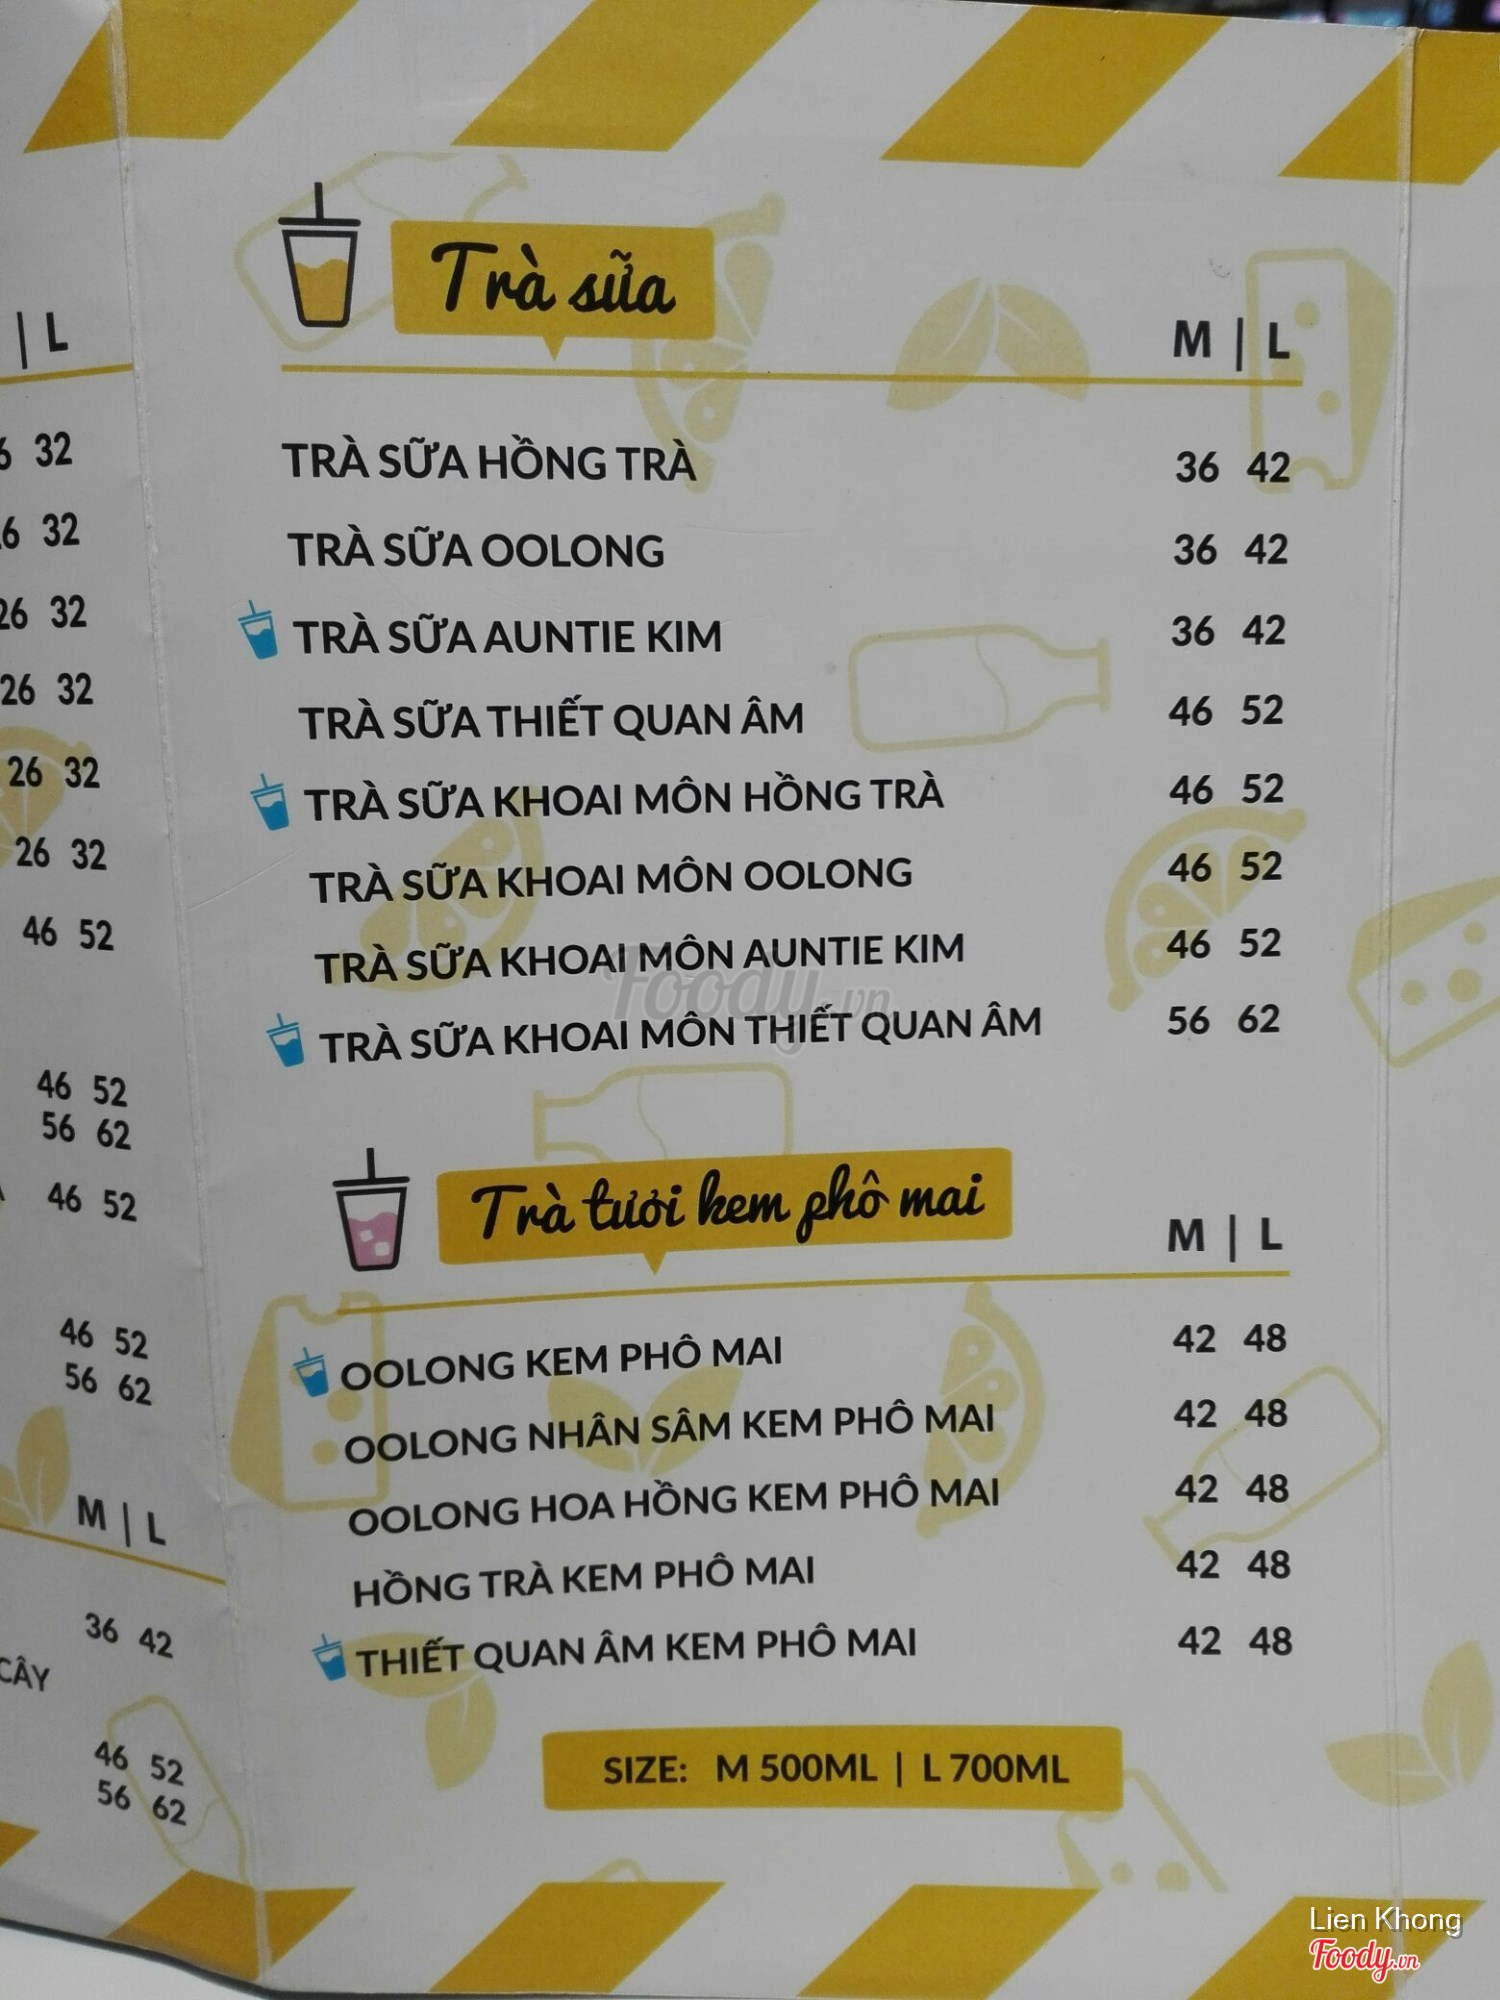 | L
6 32
6 32
26 32
26 32
26 32
26 32
46 52
46 52
56 62
46 52
46 52
56 62
M | L
36 42
CÂY
46 52
56 62
Trà sữa
M | L
TRÀ SỮA HỒNG TRÀ 36 42
TRÀ SỮA OOLONG 36 42
TRÀ SỮA AUNTIE KIM 36 42
TRÀ SỮA THIẾT QUAN ÂM 46 52
TRÀ SỮA KHOAI MÔN HỒNG TRÀ 46 52
TRÀ SỮA KHOAI MÔN OOLONG 46 52
TRÀ SỮA KHOAI MÔN AUNTIE KIM 46 52
TRÀ SỮA KHOAI MÔN THIẾT QUAN ÂM 56 62
Foody.vn
Trà tươi kem phô mai
M | L
OOLONG KEM PHÔ MAI 42 48
OOLONG NHÂN SÂM KEM PHÔ MAI 42 48
OOLONG HOA HỒNG KEM PHÔ MAI 42 48
HỒNG TRÀ KEM PHÔ MAI 42 48
THIẾT QUAN ÂM KEM PHÔ MAI 42 48
SIZE: M 500ML | L 700ML
Lien Khong
Foody.vn